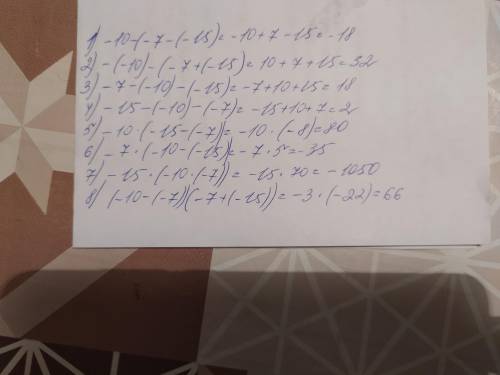 1) -10-(-7-(-15)=-10+7-15=-18
2) -(-10)-(-7+(-15)=10+7+15=32
3) -7-(-10)-(-15)=-7+10+15=18
4) -15-(-10)-(-7)=-15+10+7=2
5) -10·(-15-(-7))=-10·(-8)=80
6) -7·(-10-(-15))=-7·5=-35
7) -15·(-10·(-7))=-15·70=-1050
8) (-10-(-7))(-7+(-15))=-3·(-22)=66